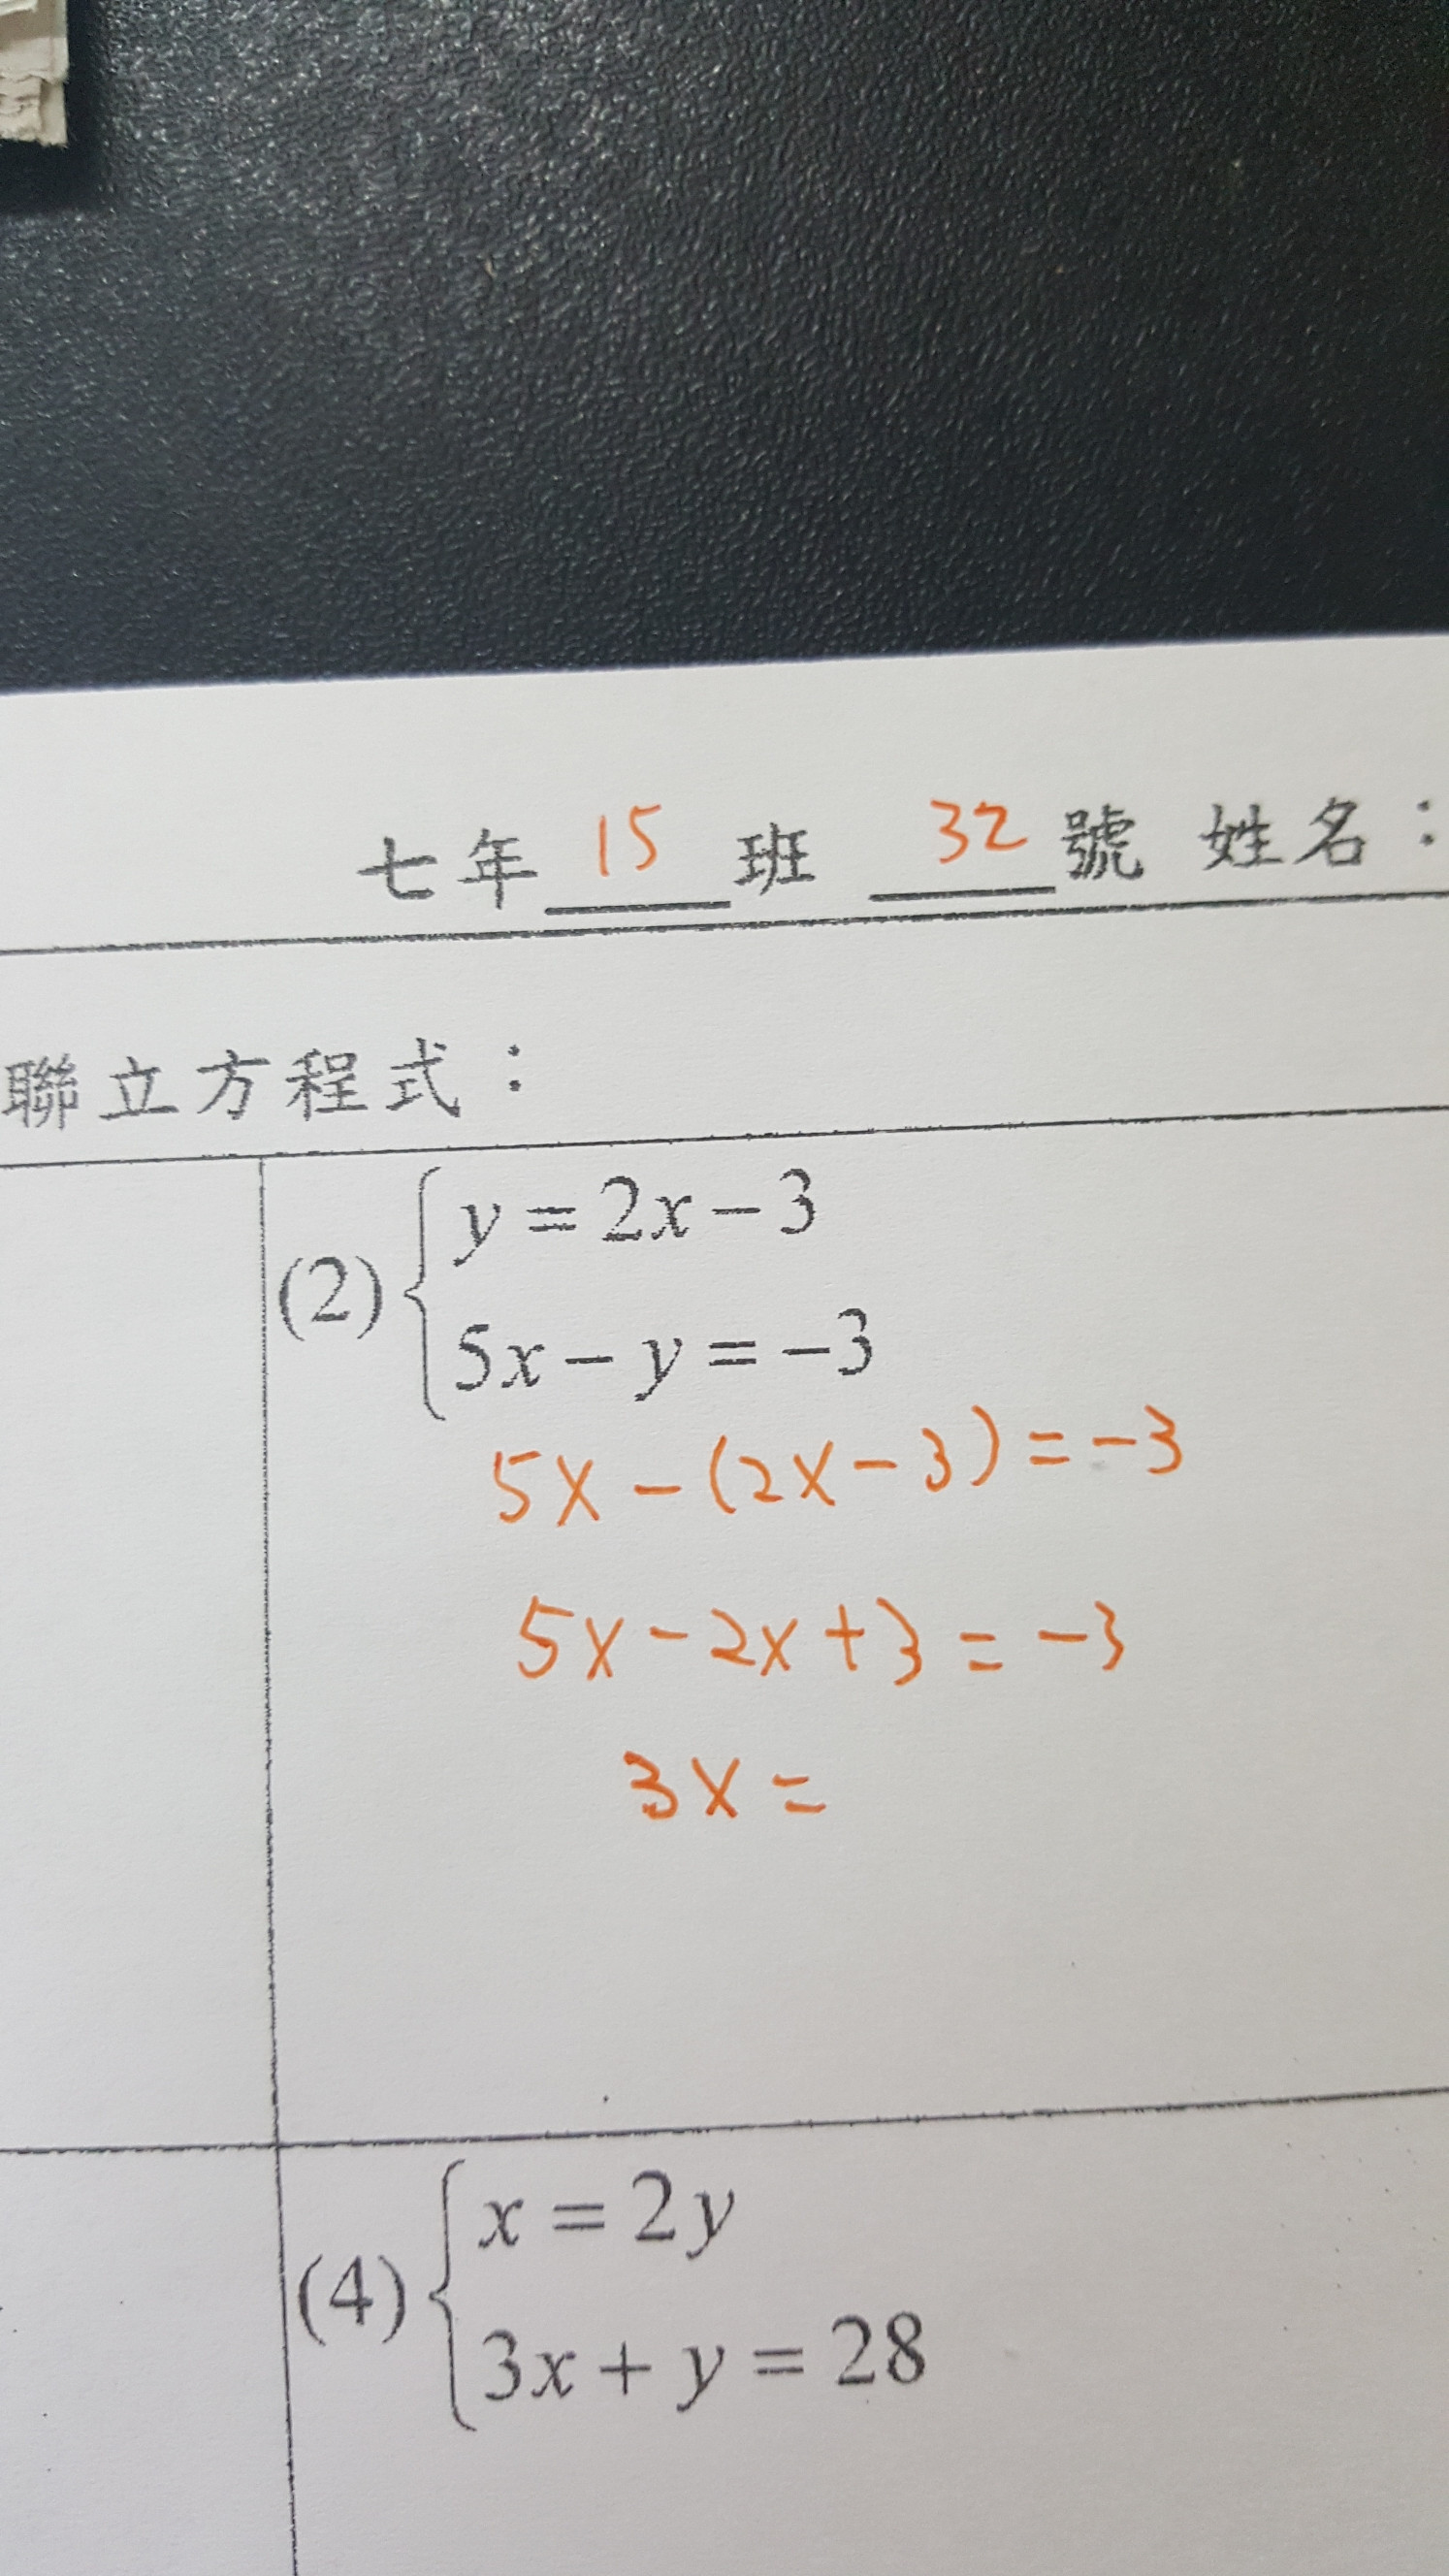 七年 15 班 32 號 姓名：
聯立方程式：
(2) { y = 2x − 3
5x − y = −3
5x − (2x − 3) = −3
5x − 2x + 3 = −3
3x =
(4) { x = 2y
3x + y = 28